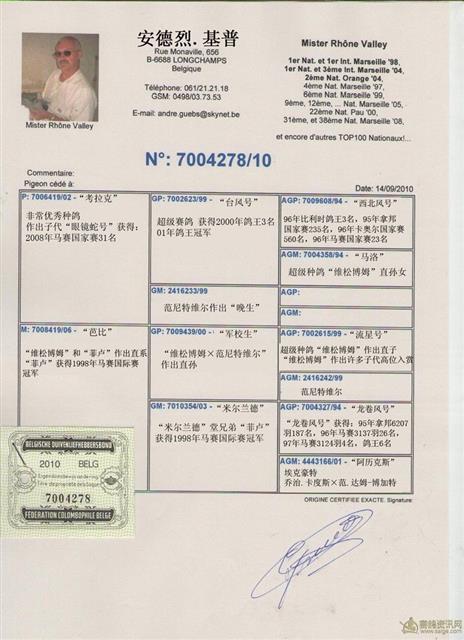 安德烈.基普
Rue Monaville, 656
B-6688 LONGCHAMPS
Belgique
Téléphone: 061/21.21.18
GSM: 0498/03.73.53
E-mail: andre.guebs@skynet.be
Mister Rhône Valley
Mister Rhône Valley
1er Nat. et 1er Int. Marseille '98,
1er Nat. et 3ème Int. Marseille '04,
2ème Nat. Orange '04,
4ème Nat. Marseille '97,
6ème Nat. Marseille '99,
9ème, 12ème, ... Nat. Marseille '05,
22ème Nat. Pau '00,
31ème, et 38ème Nat. Marseille '08,
et encore d'autres TOP100 Nationaux!...
N°: 7004278/10
Commentaire:
Pigeon cédé à:
Date: 14/09/2010
P: 7006419/02 - “考拉克”
非常优秀种鸽
作出子代“眼镜蛇号”获得:
2008年马赛国家赛31名
M: 7008419/06 - “芭比”
“维松博姆”和“菲卢”作出直系
“菲卢”获得1998年马赛国际赛
冠军
GP: 7002623/99 - “台风号”
超级赛鸽 获得2000年鸽王3名
01年鸽王冠军
GM: 2416233/99
范尼特维尔作出“晚生”
GP: 7009439/00 - “军校生”
“维松博姆×范尼特维尔”
作出直孙
GM: 7010354/03 - “米尔兰德”
“米尔兰德”堂兄弟“菲卢”
获得1998年马赛国际赛冠军
AGP: 7009608/94 - “西北风号”
96年比利时鸽王3名, 95年拿邦
国家赛235名, 96年卡奥尔国家赛
560名, 96年马赛国家赛23名
AGM: 7004358/94 - “马洛”
超级种鸽“维松博姆”直孙女
AGP:
AGM:
AGP: 7002615/99 - “流星号”
超级种鸽“维松博姆”作出直子
“维松博姆”作出许多子代高位入赏
AGM: 2416242/99
范尼特维尔
AGP: 7004327/94 - “龙卷风号”
“龙卷风号”获得: 95年拿邦6207
羽187名, 96年马赛3137羽26名,
97年马赛3124羽4名, 鸽王6名
AGM: 4443166/01 - “阿历克斯”
埃克豪特
乔治.卡度斯×范.达姆-博加特
ORIGINE CERTIFIEE EXACTE. Signature:
BELGISCHE DUIVENLIEFHEBBERSBOND
2010 BELG
Eigendomsbewijs van de ring
Titre de propriété de la bague
7004278
FEDERATION COLOMBOPHILE BELGE
赛鸽资讯网
www.saige.com